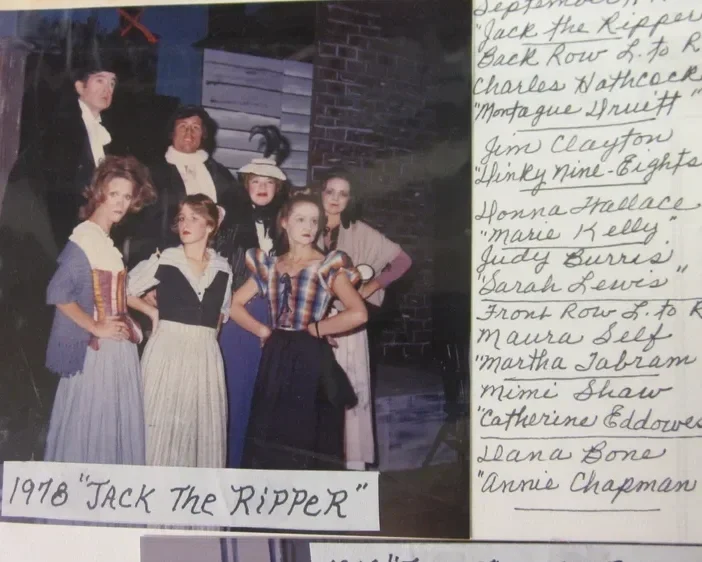 1978 "JACK The RiPPeR"
September
"Jack the Ripper
Back Row L. to R
Charles Hathcock
"Montague Druitt"
Jim Clayton
"Dinky Nine-Eights
Donna Wallace
"Marie Kelly"
Judy Burris
"Sarah Lewis"
Front Row L. to R
Maura Self
"Martha Tabram
Mimi Shaw
"Catherine Eddowes
Dana Bone
"Annie Chapman